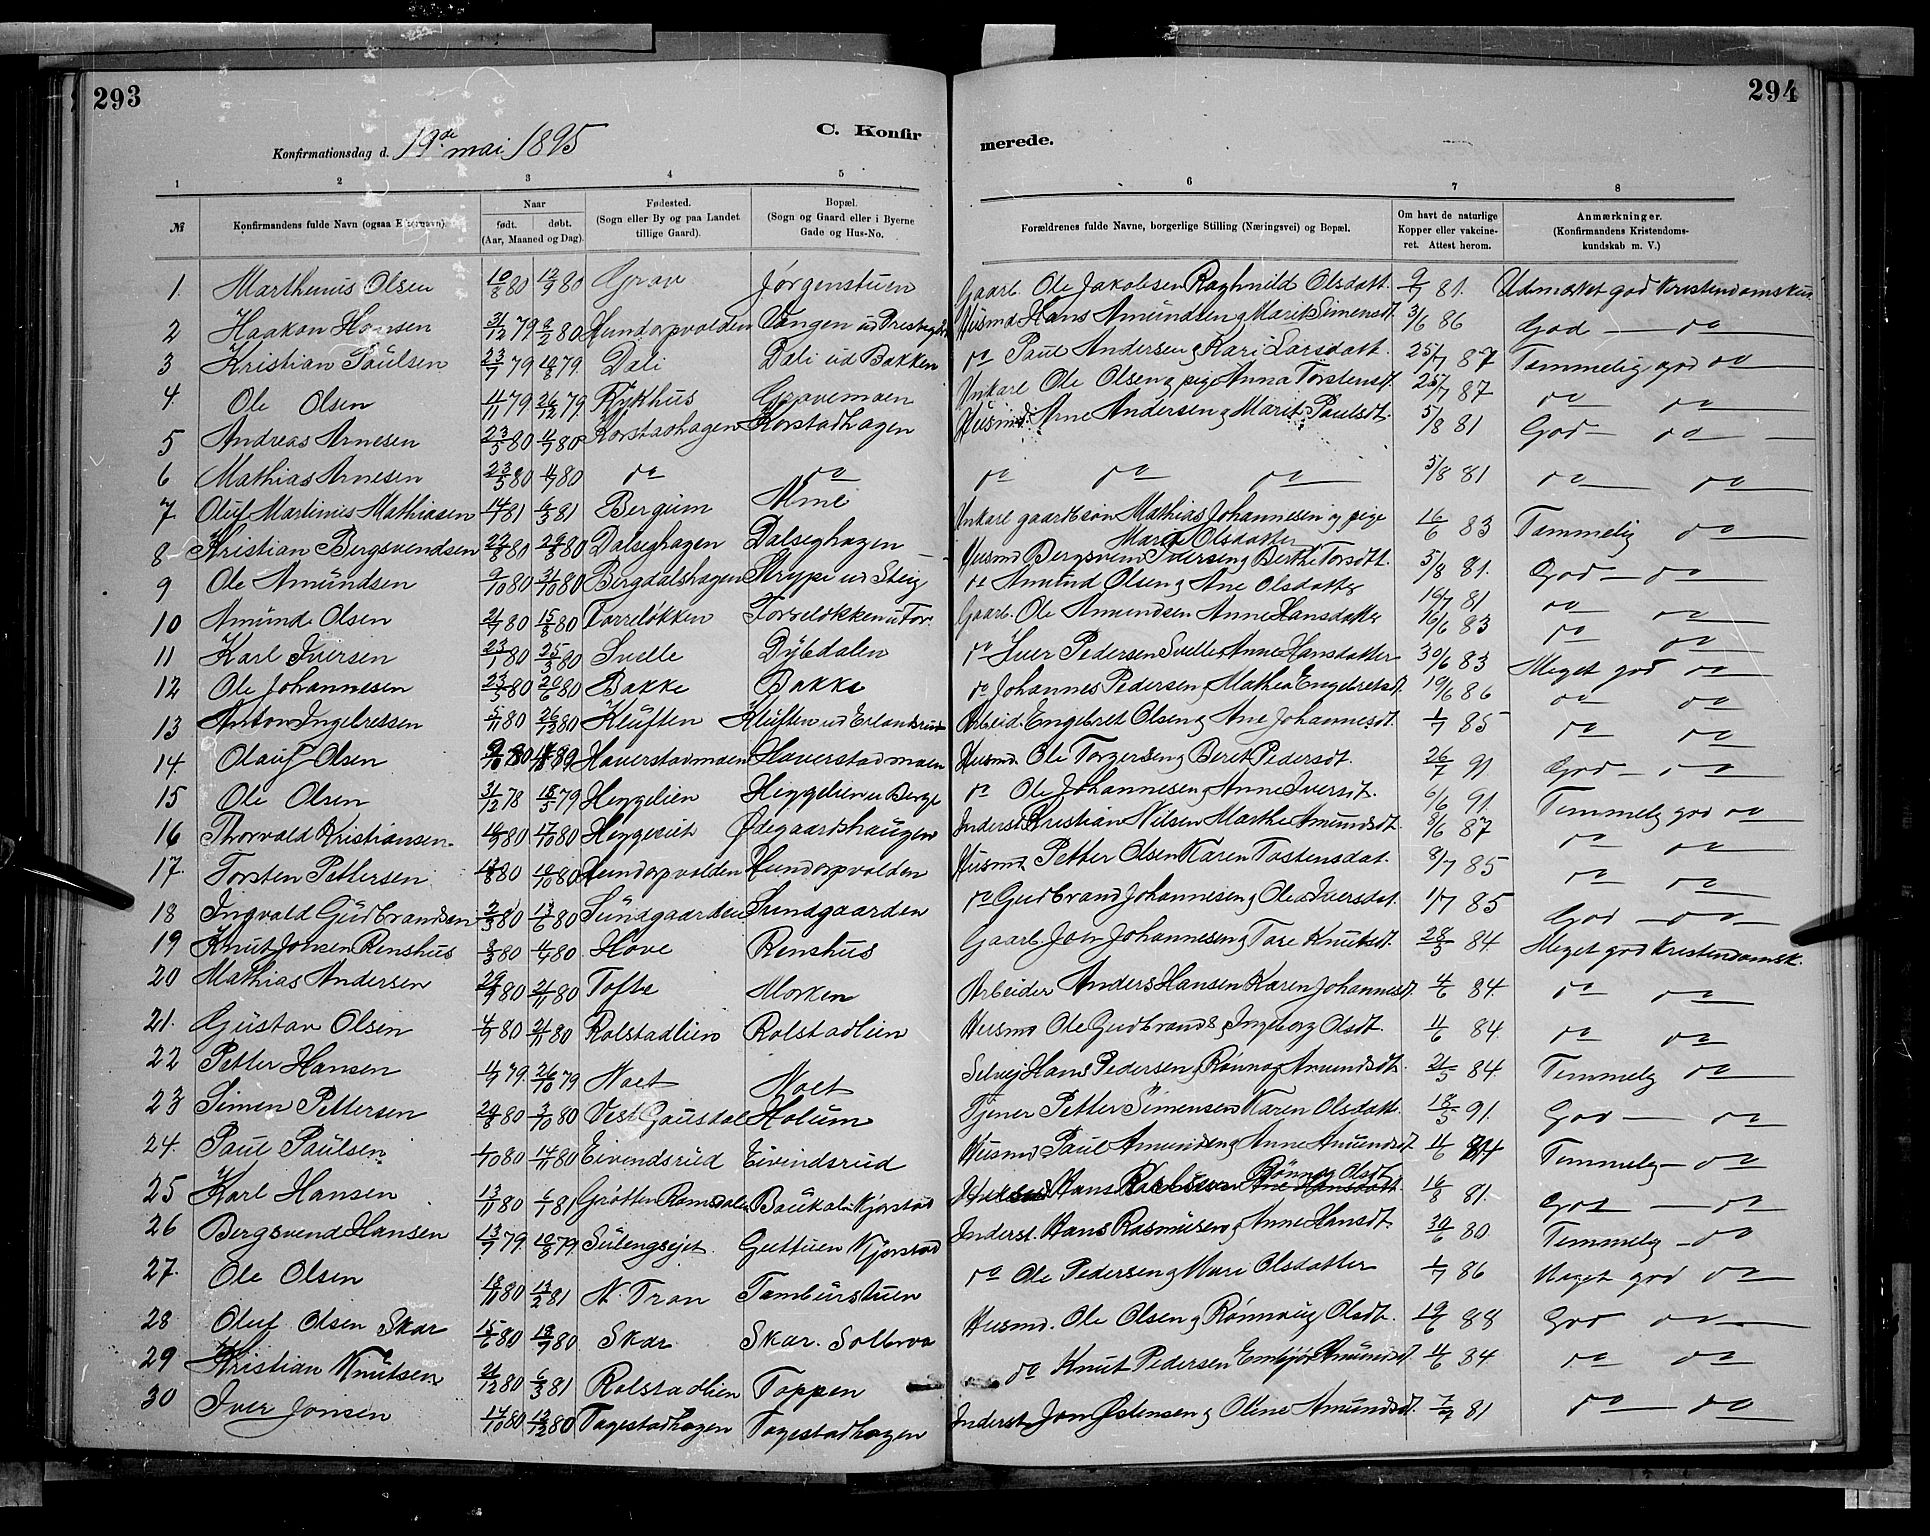 293
294
C. Konfir
merede.
Konfirmationsdag d. 19de mai 1895
1 2 3 4 5 6 7 8
№ Konfirmandens fulde Navn (ogsaa Efternavn). Naar født. døbt. (Aar, Maaned og Dag). Fødested. (Sogn eller By og paa Landet tillige Gaard). Bopæl. (Sogn og Gaard eller i Byerne Gade og Hus-No. Forældrenes fulde Navne, borgerlige Stilling (Næringsvei) og Bopæl. Om havt de naturlige Kopper eller vakcineret. Attest herom. Anmærkninger. (Konfirmandens Kristendomskundskab m. V.)
1. Marthenus Olsen 10/8 80 12/9 80 Grav Jørgenstuen Gaarb. Ole Jakobsen Raghnild Olsdatt. 81. Udmærket god Kristendomskun
2 Haakon Hansen 31/12 79 8/2 80 Hundorpvolden Vangen Husmd Hans Amundsen og Marit Simensdt. 3/6 86 God — do
3 Kristian Paulsen 23/7 79 10/8 79. Dali Dali ud Bakken do Paul Andersen og Kari Larsdatt. 25/7 87 Temmelig god do
4. Ole Olsen 4/11 79 26/12 79 Rykhus Gravemoen Unkarl Ole Olsen og pige Anna Torstensdt. 25/7 87 do do
5 Andreas Arnesen 23/5 80 4/7 80 Korstadhagen Korstadhagen Husmd. Arne Andersen og Marit Paulsdt. 5/8 81 God — do —
6 Mathias Arnesen 23/5 80 4/7 80 do do do do do 5/8 81 do do
7 Oluf Martinus Mathiasen 14/1 81 6/3 81 Bergum Unkarl gaardbsøn Mathias Johannesen og pige Marit Olsdatter 16/6 83 Temmelig do
8 Kristian Bergsvendsen 22/8 80 29/8 80 Dalseghagen Dalseghagen Husmd Bergsvend Pedersen og Berthe Torsdt. 5/8 81. God — do
9 Ole Amundsen 9/10 80 31/10 80 Bergdalshagen Strype ud Steig do Amund Olsen og Ane Olsdatter 81 do do
10 Amund Olsen 21/7 80 15/8 80 Torreløkken Torreløkken u Tor. Gaarb. Ole Amundsen Anne Hansdatter 16/6 83 do do
11 Karl Iversen 23/1 80 25/3 80 Svelle Dybdalen do Iver Pedersen Svelle Anne Hansdatter 30/6 83 Meget god do
12 Ole Johannesen 23/5 80 20/6 80 Bakke Bakke do Johannes Pedersen og Mathea Engebretsdt. 19/6 86 do do
13 Anton Ingebretsen 5/11 80 26/12 80 Kluften Kluften ud Erlandsrud Arbeid. Engebret Olsen og Ane Johannesdt. 1/7 85 do do
14. Olauf Olsen 80 Haverstadmoen Haverstadmoen Husmd. Ole Torgersen og Beret Pedersdt. 26/7 91 God — do
15 Ole Olsen 31/12 78 18/5 79 Heggelien Heggelien u Berge do Ole Johannesen og Anne Iversdt. 6/6 91. Temmelig god do
16 Thorvald Kristiansen. 80 17/10 80 Heggeeiet Ødegaardshaugen Inderst. Kristian Nilsen Marthe Amundsdt. 8/6 87 do do
17. Torsten Pettersen 80 10/10 80 Hundorpvolden Hundorpvolden Husmd. Petter Olsen Karen Tostensdat. 8/7 85 do do
18 Ingvald Gudbrandsen 2/5 80 13/6 80 Sundgaarden Sundgaarden do Gudbrand Johannesen og Olea Iversdat. 1/7 85 God — do
19 Knut Jonsen Renshus 3/3 80 4/4 80 Hove Renshus Gaarb. Jon Johannesen og Tore Knutsdt. 28/5 84 Meget god Kristendomsk.
20 Mathias Andersen 29/9 80 21/11 80 Tofte Morken Arbeider Anders Hansen Karen Johannesdt. 4/6 84. do do
21. Gustav Olsen 4/9 80 21/11 80 Rolstadlien Rolstadlien Husmd Ole Gudbrands og Ingeborg Olsdt. 4/6 84. do do
22 Petter Hansen 4/9 79. 26/10 79 Noet Noet Selvej Hans Pedersen og Rønnog Amundsdt. 21/5 84. Temmelig do
23 Simen Pettersen 29/8 80 3/10 80 Vest Gausdal Holum Tjener Petter Simensen Karen Olsdatt. 18/5 91. God — do
24. Paul Paulsen 1/10 80 14/11 80 Eivendsrud Eivindsrud Husmd Paul Amundsen og Anne Amundsdt. 4/6 84 Temmelig — do
25 Karl Hansen 13/11 80 6/1 81 Grøtten Romsdalen Baukolu Kjorstad Hans Rønnog Olsdt. Ane Hansdatt. 16/8 81. God — do
26 Bergsvend Hansen 13/7 79. 10/8 79 Sulengsejet. Guttuen Kjorstad Inderst. Hans Rasmusen og Anne Hansdt. 30/6 80. Temmelig — do
27. Ole Olsen 18/11 80 13/2 81 N. Tron Tamburstuen do Ole Pedersen og Mari Olsdatter 1/7 86 Meget god do
28. Oluf Olsen Skar 15/6 80 19/9 80 Skar. Skar. Solbraa Husmd. Ole Olsen og Rønnaug Olsdt. 19/6 88 God do
29 Kristian Knutsen 21/12 80 6/3 81 Rolstadlien Toppen do Knut Pedersen Embjør Amundsdt. 4/6 84 do do
30 Iver Jonsen 17/10 80 12/12 80 Tagestadhagen Tagestadhagen Inderst Jon Østensen og Oline Amundsdt. 81 do do